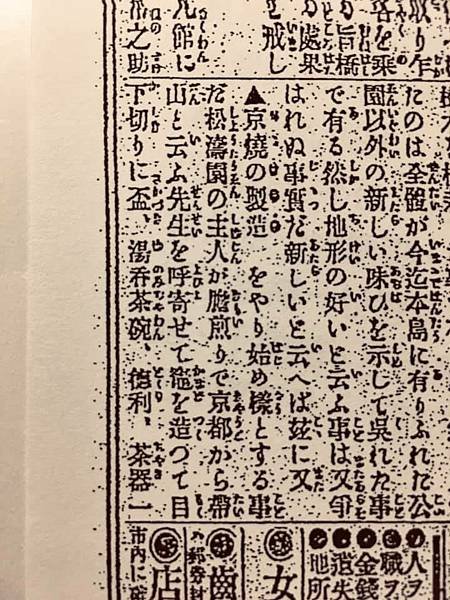 取り乍
客を乘
る旨橋
る處果
を戒し
館に
之助
たのは全體が今迄本島に有りふれた公
園以外の新しい味ひを示して呉れた事
で有る然し地形の好いと云ふ事は又爭
はれぬ事實だ新しいと云へば玆に又
▲京燒の製造 をやり始め樣とする事
だ松濤園の主人が膽煎りで京都から帶
山と云ふ先生を呼寄せて竈を造つて目
下切りに盃、湯呑茶碗、德利、茶器一
人ヲ
職ヲ
金錢
遺失
地所
女
齒
郵券封
店
市内に